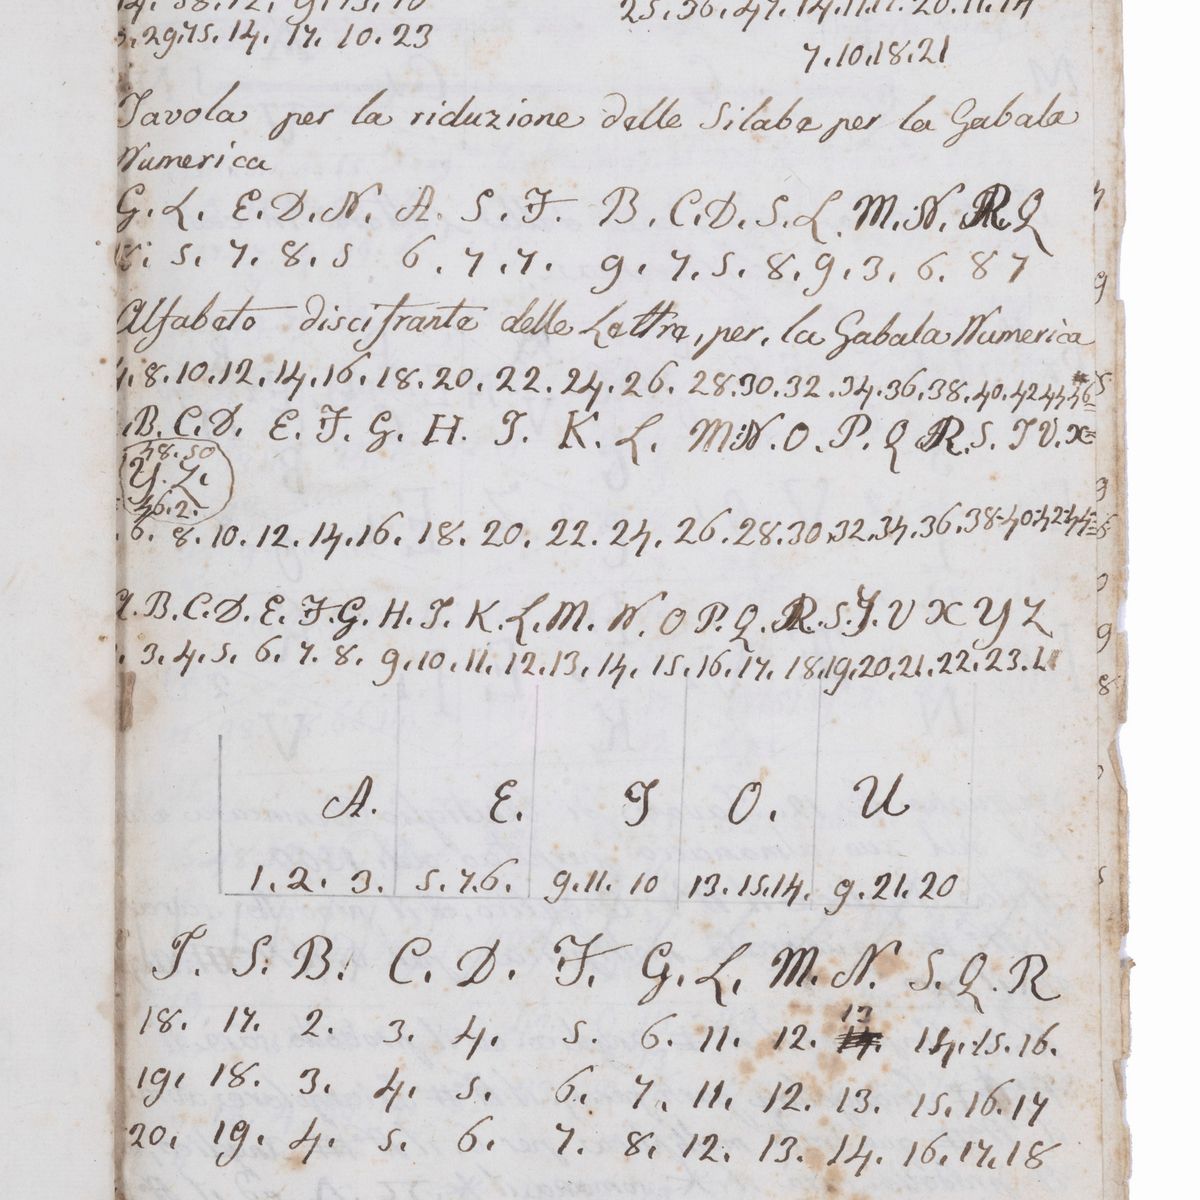 25. 36. 47. 14.11.17. 20.11.14
29.15. 14. 17. 10. 23
7.10.18.21
Tavola per la riduzione delle Silabe per la Gabala
Numerica
G. L. E. D. N. A. S. F. B. C. D. S. L. M. N. R Q
5. 7. 8. 5 6. 7. 7. 9. 7. 5. 8. 9. 3. 6. 8 7
Alfabeto discifrante delle Lettre, per, la Gabala Numerica
8. 10. 12. 14. 16. 18. 20. 22. 24. 26. 28. 30. 32. 34. 36. 38. 40. 42 44 46
B. C. D. E. F. G. H. I. K. L. M. N. O. P. Q R. S. T V. X=
48. 50
Y. Z.
46. 2.
6. 8. 10. 12. 14. 16. 18. 20. 22. 24. 26. 28. 30. 32. 34. 36. 38. 40. 42. 44=
A. B. C. D. E. F. G. H. I. K. L. M. N. O P. Q. R. S. T. V X Y Z
3. 4. 5. 6. 7. 8. 9. 10. 11. 12. 13. 14. 15. 16. 17. 18. 19. 20. 21. 22. 23. 1
A. E. I O. U
1. 2. 3. 5. 7. 6. 9. 11. 10 13. 15. 14. 9. 21. 20
T. S. B. C. D. F. G. L. M. N. S. Q. R
13
18. 17. 2. 3. 4. 5. 6. 11. 12. 14. 15. 16.
19. 18. 3. 4. 5. 6. 7. 11. 12. 13. 15. 16. 17
20. 19. 4. 5. 6. 7. 8. 12. 13. 14. 16. 17. 18